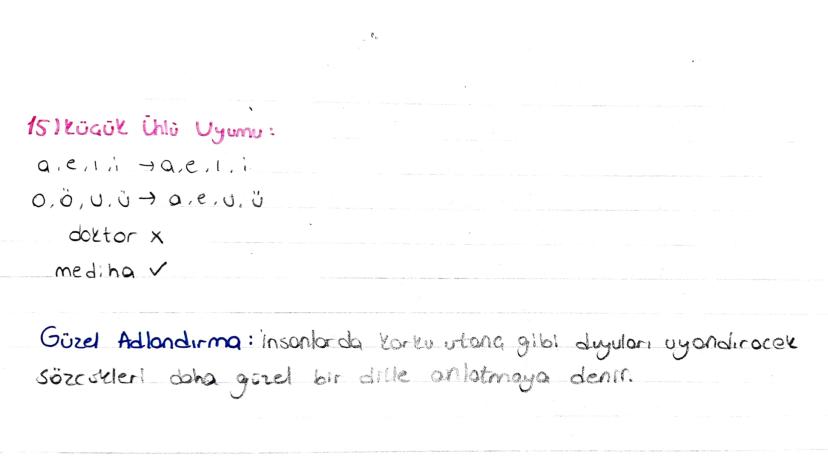 15) Küçük Ünlü Uyumu:
a, e, ı, i → a, e, ı, i
o, ö, u, ü → a, e, u, ü
doktor x
mediha ✓
Güzel Adlandırma: insanlarda korku utanç gibi duyuları uyandıracak
sözcükleri daha güzel bir dille anlatmaya denir.